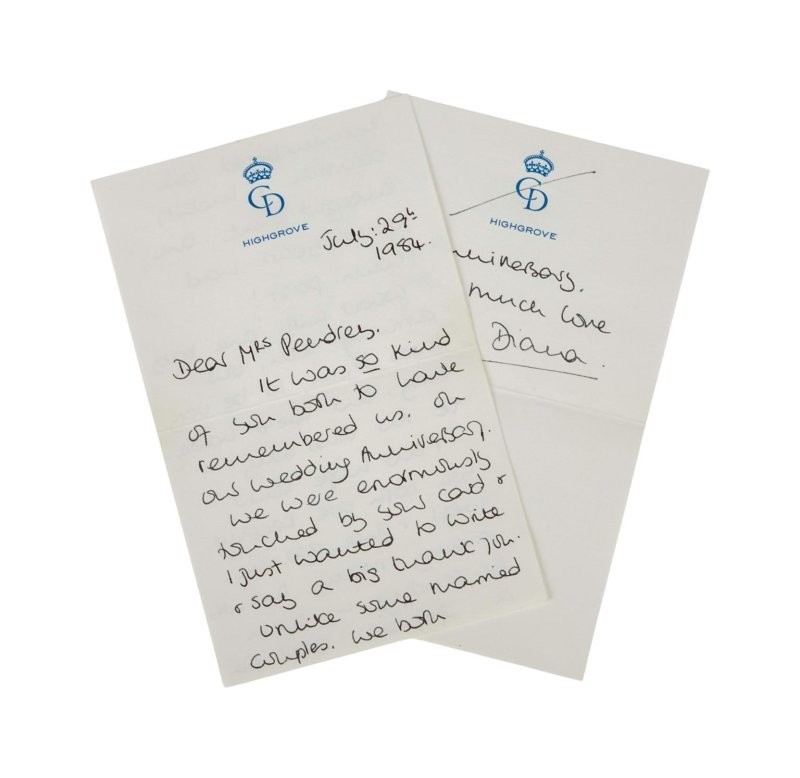 CD
HIGHGROVE
July: 29th
1984.
Dear Mrs Pendrey.
It was so kind
of you both to have
remembered us. on
our wedding Anniversary.
we were enormously
touched by your card &
I just wanted to write
& say a big thank you.
Unlike some married
couples. we both
CD
HIGHGROVE
nniversary.
much love
Diana.